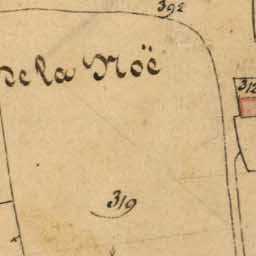 392
de la Noë
312
319